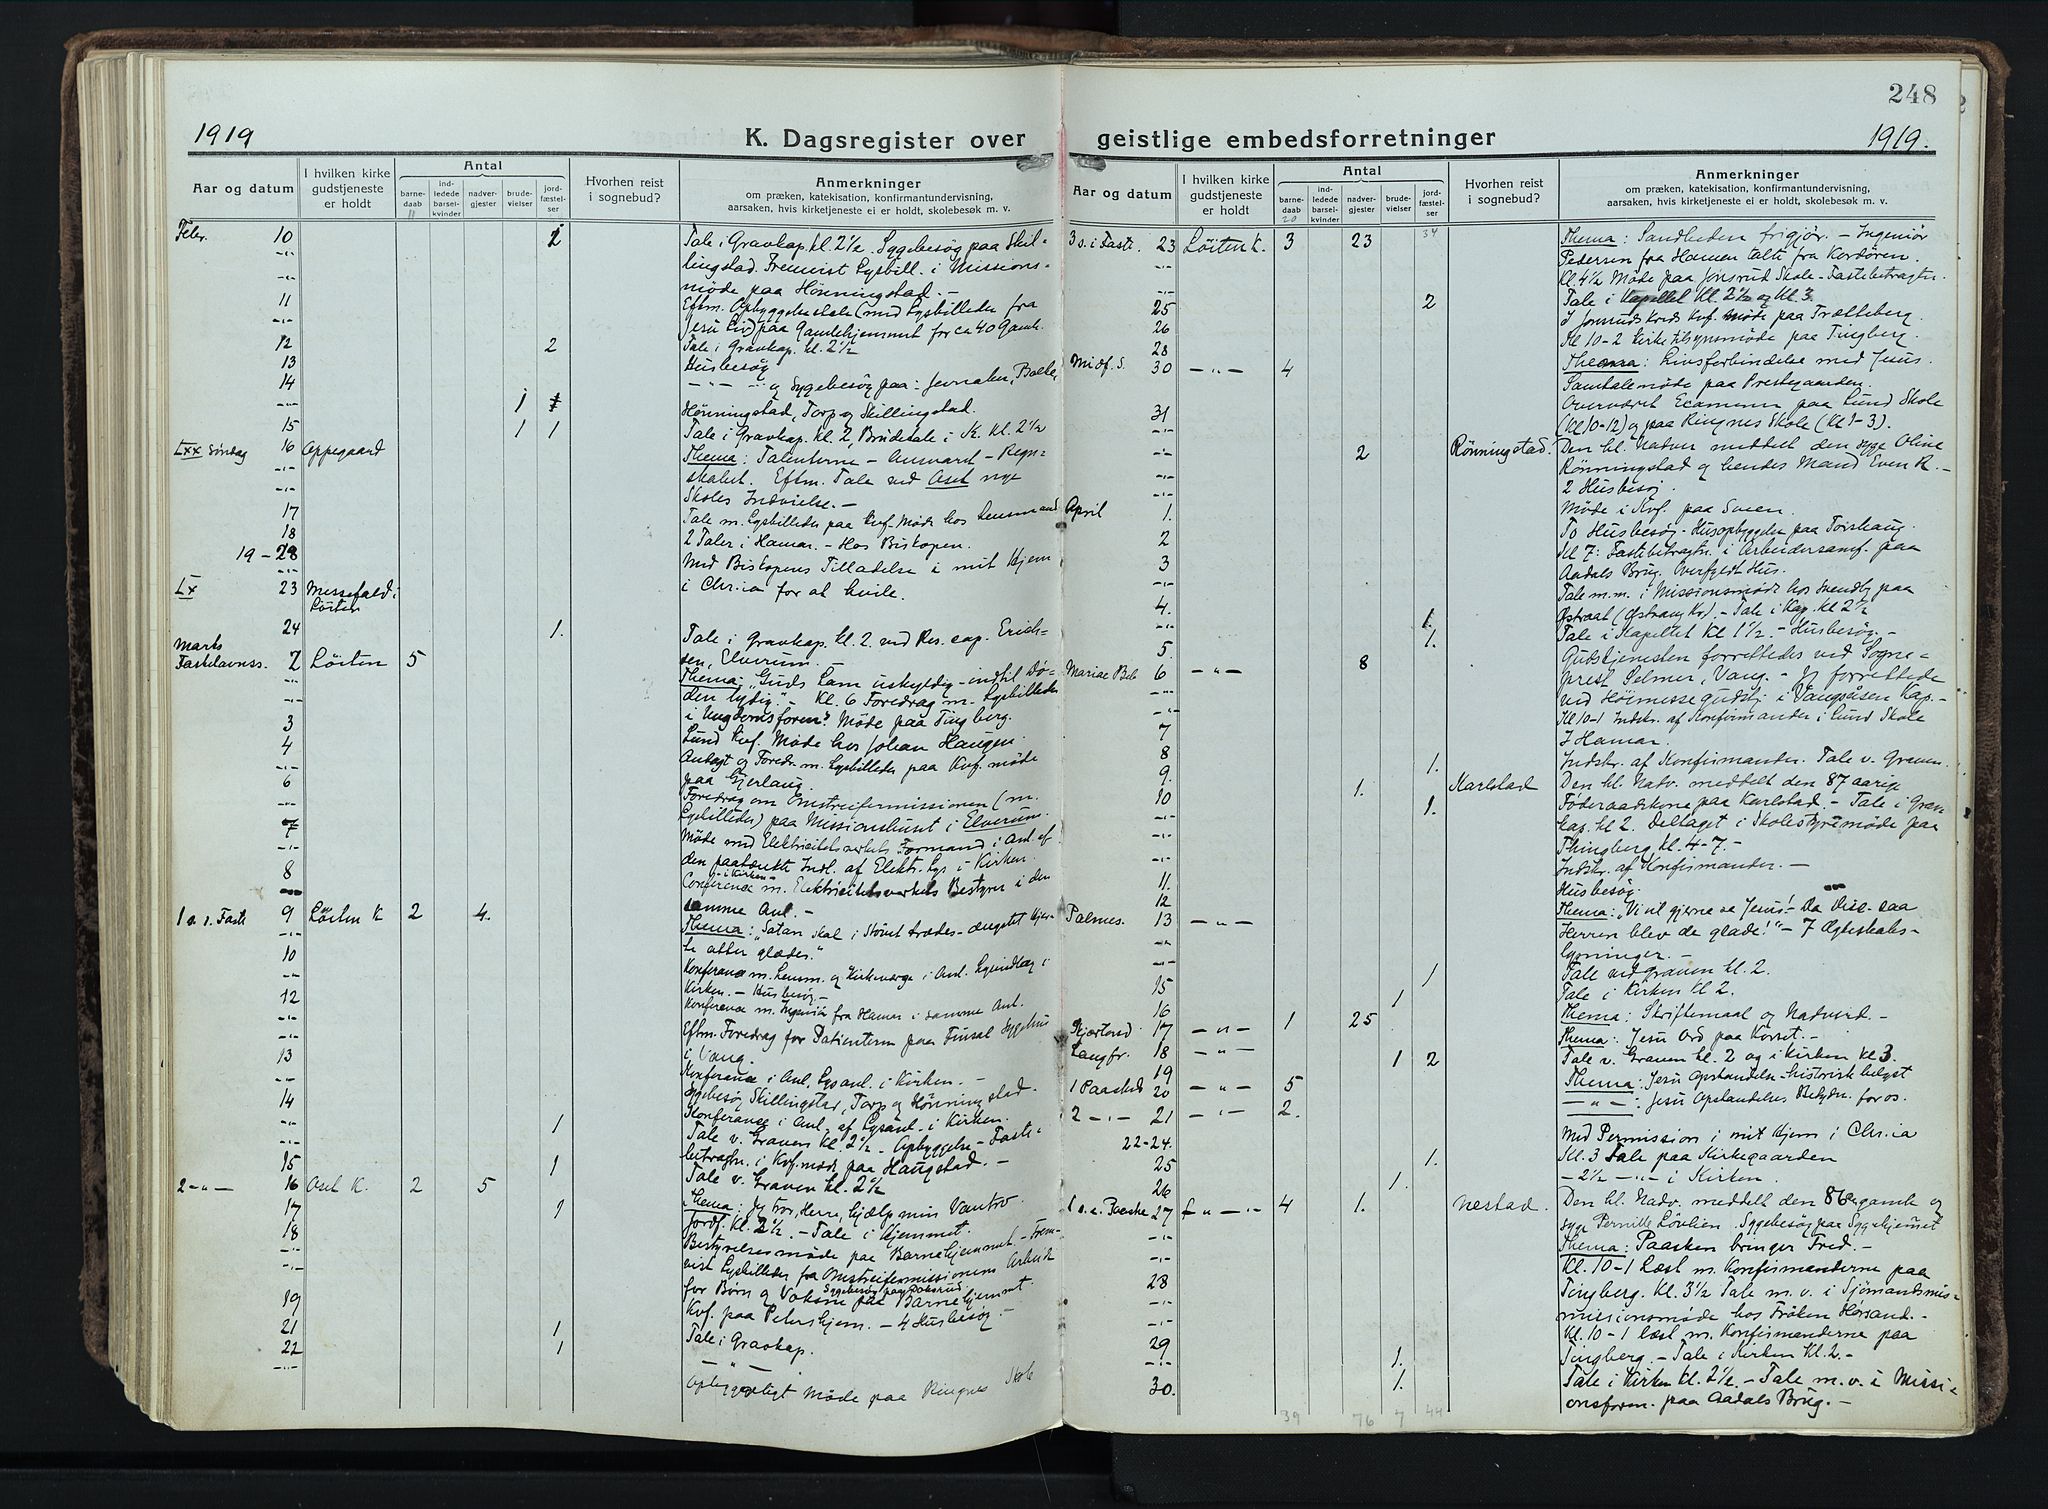 248
1919
K. Dagsregister over geistlige embedsforretninger
1919.
Aar og datum
I hvilken kirke gudstjeneste er holdt
Antal
barne-daab
ind-ledede barsel-kvinder
nadver-gjester
brude-vielser
jord-fæstel-ser
Hvorhen reist i sognebud?
Anmerkninger
om præken, katekisation, konfirmantundervisning,
aarsaken, hvis kirketjeneste ei er holdt, skolebesøk m. v.
11
Febr. 10 2 Tale i Gravkap. kl. 2½. Sygebesøg paa Skil-
lingstad. Fremvist Lysbill. i Missions-
møde paa Hönningstad. –
11 Eftm. Opbyggelsestale (med Lysbilleder fra
Jesu Liv) paa Gamlehjemmet for ca 40 Gamle.
12 2 Tale i Gravkap. kl. 2½
13 Husbesøg
14 –"– –"– og Sygebesøg paa: Jernaker, Bakke,
1 Hönningstad, Torp og Skillingstad.
15 1 1 Tale i Gravkap. kl. 2, Brudetale i K. kl. 2½
LXX Søndag 16 Oppegaard Thema: Talenterne – Ansvaret – Regn-
skabet. Eftm. Tale ved Aset nye
Skoles Indvielse. –
17 Tale m. Lysbilleder paa Kvf. Møde hos Lensmand
18 2 Taler i Hamar. – Hos Biskopen.
19 – 28 Med Biskopens Tilladelse i mit Hjem
LX 23 Messefald i Löiten i Chr.ia for at hvile.
24 1. Tale i Gravkap. kl. 2 ved Res. cap. Erich-
sen, Elverum. –
Marts
Fastelavnss. 2 Löiten 5 Thema: "Guds Lam uskyldig – indtil Dø-
den lydig". – Kl. 6 Foredrag m. Lysbilleder
i Ungdomsforen.s Møde paa Tingberg.
3 Lund Kvf. Møde hos Johan Haugen.
4 Andagt og Foredr. m. Lysbilleder paa Kvf. møde
paa Gjerlaug.
6 Foredrag om Omstreifermissionen (m.
Lysbilleder) paa Missionshuset i Elverum.
7 Møde med Elektricitetsverkets Formand i Anl. af
den paatænkte Indl. af Elektr. Lys i Kirken.
8 Conference i Kirken m. Elektricitetsverkets Bestyrer i den
samme Anl. –
1 s. i Faste 9 Löiten K 2 4. Thema: "Satan skal i Støvet trædes – ængstet Hjer-
te atter glædes."
10 Konference m. Lensm. og Kirkeværge i Anl. Lysindlæg i
Kirken. – Husbesøg –
12 Konference m. Ingeniør fra Hamar i samme Anl.
Eftm. Foredrag for Patienterne paa Finsal Sygehus
i Vang.
13 Konference i Anl. Lysanl. i Kirken. –
Sygebesøg Skillingstad, Torp og Hönningstad.
14 Konference i Anl. af Lysanl. i Kirken.
1 Tale v. Graven kl. 2½ – Opbyggelse – Faste-
betragtn. i Kvf. møde paa Haugstad. –
15 1 Tale v. Graven kl. 2½
2 –"– 16 Aset K. 2 5 Thema: Jeg tror, Herre, hjælp min Vantro
17 1 Jordf. Kl. 2½. – Tale i Hjemmet.
18 Bestyrelsesmøde paa Barnehjemmet – Frem-
vist Lysbilleder fra Omstreifermissionens Arbeide
for Børn og Voksne paa Barnehjemmet
19 Kvf. paa Petershjem. – 4 Husbesøg. –
21 1 Tale i Gravkap.
22 1 –"–
Opbyggeligt Møde paa Ringnes Skole
Aar og datum
I hvilken kirke gudstjeneste er holdt
Antal
barne-daab
ind-ledede barsel-kvinder
nadver-gjester
brude-vielser
jord-fæstel-ser
Hvorhen reist i sognebud?
Anmerkninger
om præken, katekisation, konfirmantundervisning,
aarsaken, hvis kirketjeneste ei er holdt, skolebesøk m. v.
20 34
3 s. i Faste. 23 Löiten K. 3 23 Thema: Sandheden frigjør. – Ingeniør
Pedersen fra Hamar talte fra Kordören.
Kl. 4½ Møde paa Jönsrud Skole – Fastebetragtn.
25 2 Tale i Kapellet Kl. 2½ og Kl. 3
26 I Jönsruds Kreds Kvf. Møde paa Frætteberg.
28 Kl 10–2 Kirketilsynsmøde paa Tingberg.
Midf. S. 30 –"– 4 Thema: Livsforbindelse med Jesus.
Samtalemøde paa Prestegaarden.
31 Overværet Examenen paa Lund Skole
(Kl 10–12) og paa Ringnes Skole (Kl 1–3).
2 Rönningstad. Den hl. Nadver meddelt den syge Oline
Rönningstad og hendes Mand Even R. –
2 Husbesøg.
April 1. Møde i Kvf. paa Sveen.
2 To Husbesøg – Husopbyggelse paa Torshaug.
3 Kl 7: Fastebetragtn. i Arbeidersamf. paa
Aadals Brug. Overfyldt Hus.
4. Tale m.m. i Missionsmøde hos Svendby paa
1. Østraat (Østvang Kr.) – Tale i Kap. Kl 2½
5. 1. Tale i Kapellet Kl 1½. – Husbesøg. –
Mariae Beb 6 –"– 8 Gudstjenesten forrettedes ved Sogne-
prest Selmer, Vang. – Jeg forrettede
ved Höimessegudstj. i Vangsåsen Kap. –
7 Kl. 10–1 Indskr. af Konfirmander i Lund Skole
8 I Hamar.
9. 1. Indskr. af Konfirmander. Tale v. Graven.
10 1. Karlstad Den hl. Nadv. meddelt den 87 aarige
1. Föderaadskone paa Karlstad. – Tale i Grav-
kap. kl 2. Deltaget i Skolestyremøde paa
Thingberg kl. 4–7. –
11. Indskr. af Konfirmander. –
12 Husbesøg.
Palmes. 13 –"– Thema: "Vi vil gjerne se Jesus!– Da Disc. saa
Herren blev de glade!" – 7 Ægteskabs-
lysninger. –
15 1 Tale ved graven kl. 2.
16 1 Tale i Kirken kl 2.
Skjærtorsd 17 –"– 1 25 Thema: Skriftemaal og Nadverd. –
Langfr. 18 –"– Thema: Jesu Ord paa Korset. –
19 1 2 Tale v. Graven kl. 2 og i Kirken kl 3.
1 Paasked 20 –"– 5 Thema: Jesu Opstandelse – historisk belyst
2 –"– 21 –"– 2. –"– : Jesu Opstandelses Betydn. for os.
22–24. Med Permission i mit Hjem i Chr.ia
25 1. Kl. 3 Tale paa Kirkegaarden
26 1. – 2½ –"– i Kirken.
1 s. e. Paaske 27 –"– 4 1. Næstad. Den hl. Nadv. meddelt den 86 aar gamle og
syge Pernille Lövlien. Sygebesøg paa Sygehjemmet
Thema: Paasken bringer Fred. –
28 Kl. 10–1 læst m. Konfirmanderne paa
Tingberg. Kl. 3½ Tale m. v. i Sjömandsmis-
missionsmøde hos Frøken Horrand. –
29 Kl. 10–1 læst m. Konfirmanderne paa
1. Tingberg. – Tale i Kirken Kl. 2. –
30. 1. Tale i Kirken Kl. 2½. – Tale m. v. i Missi-
onsforen. paa Aadals Brug. –
39 76 7 44